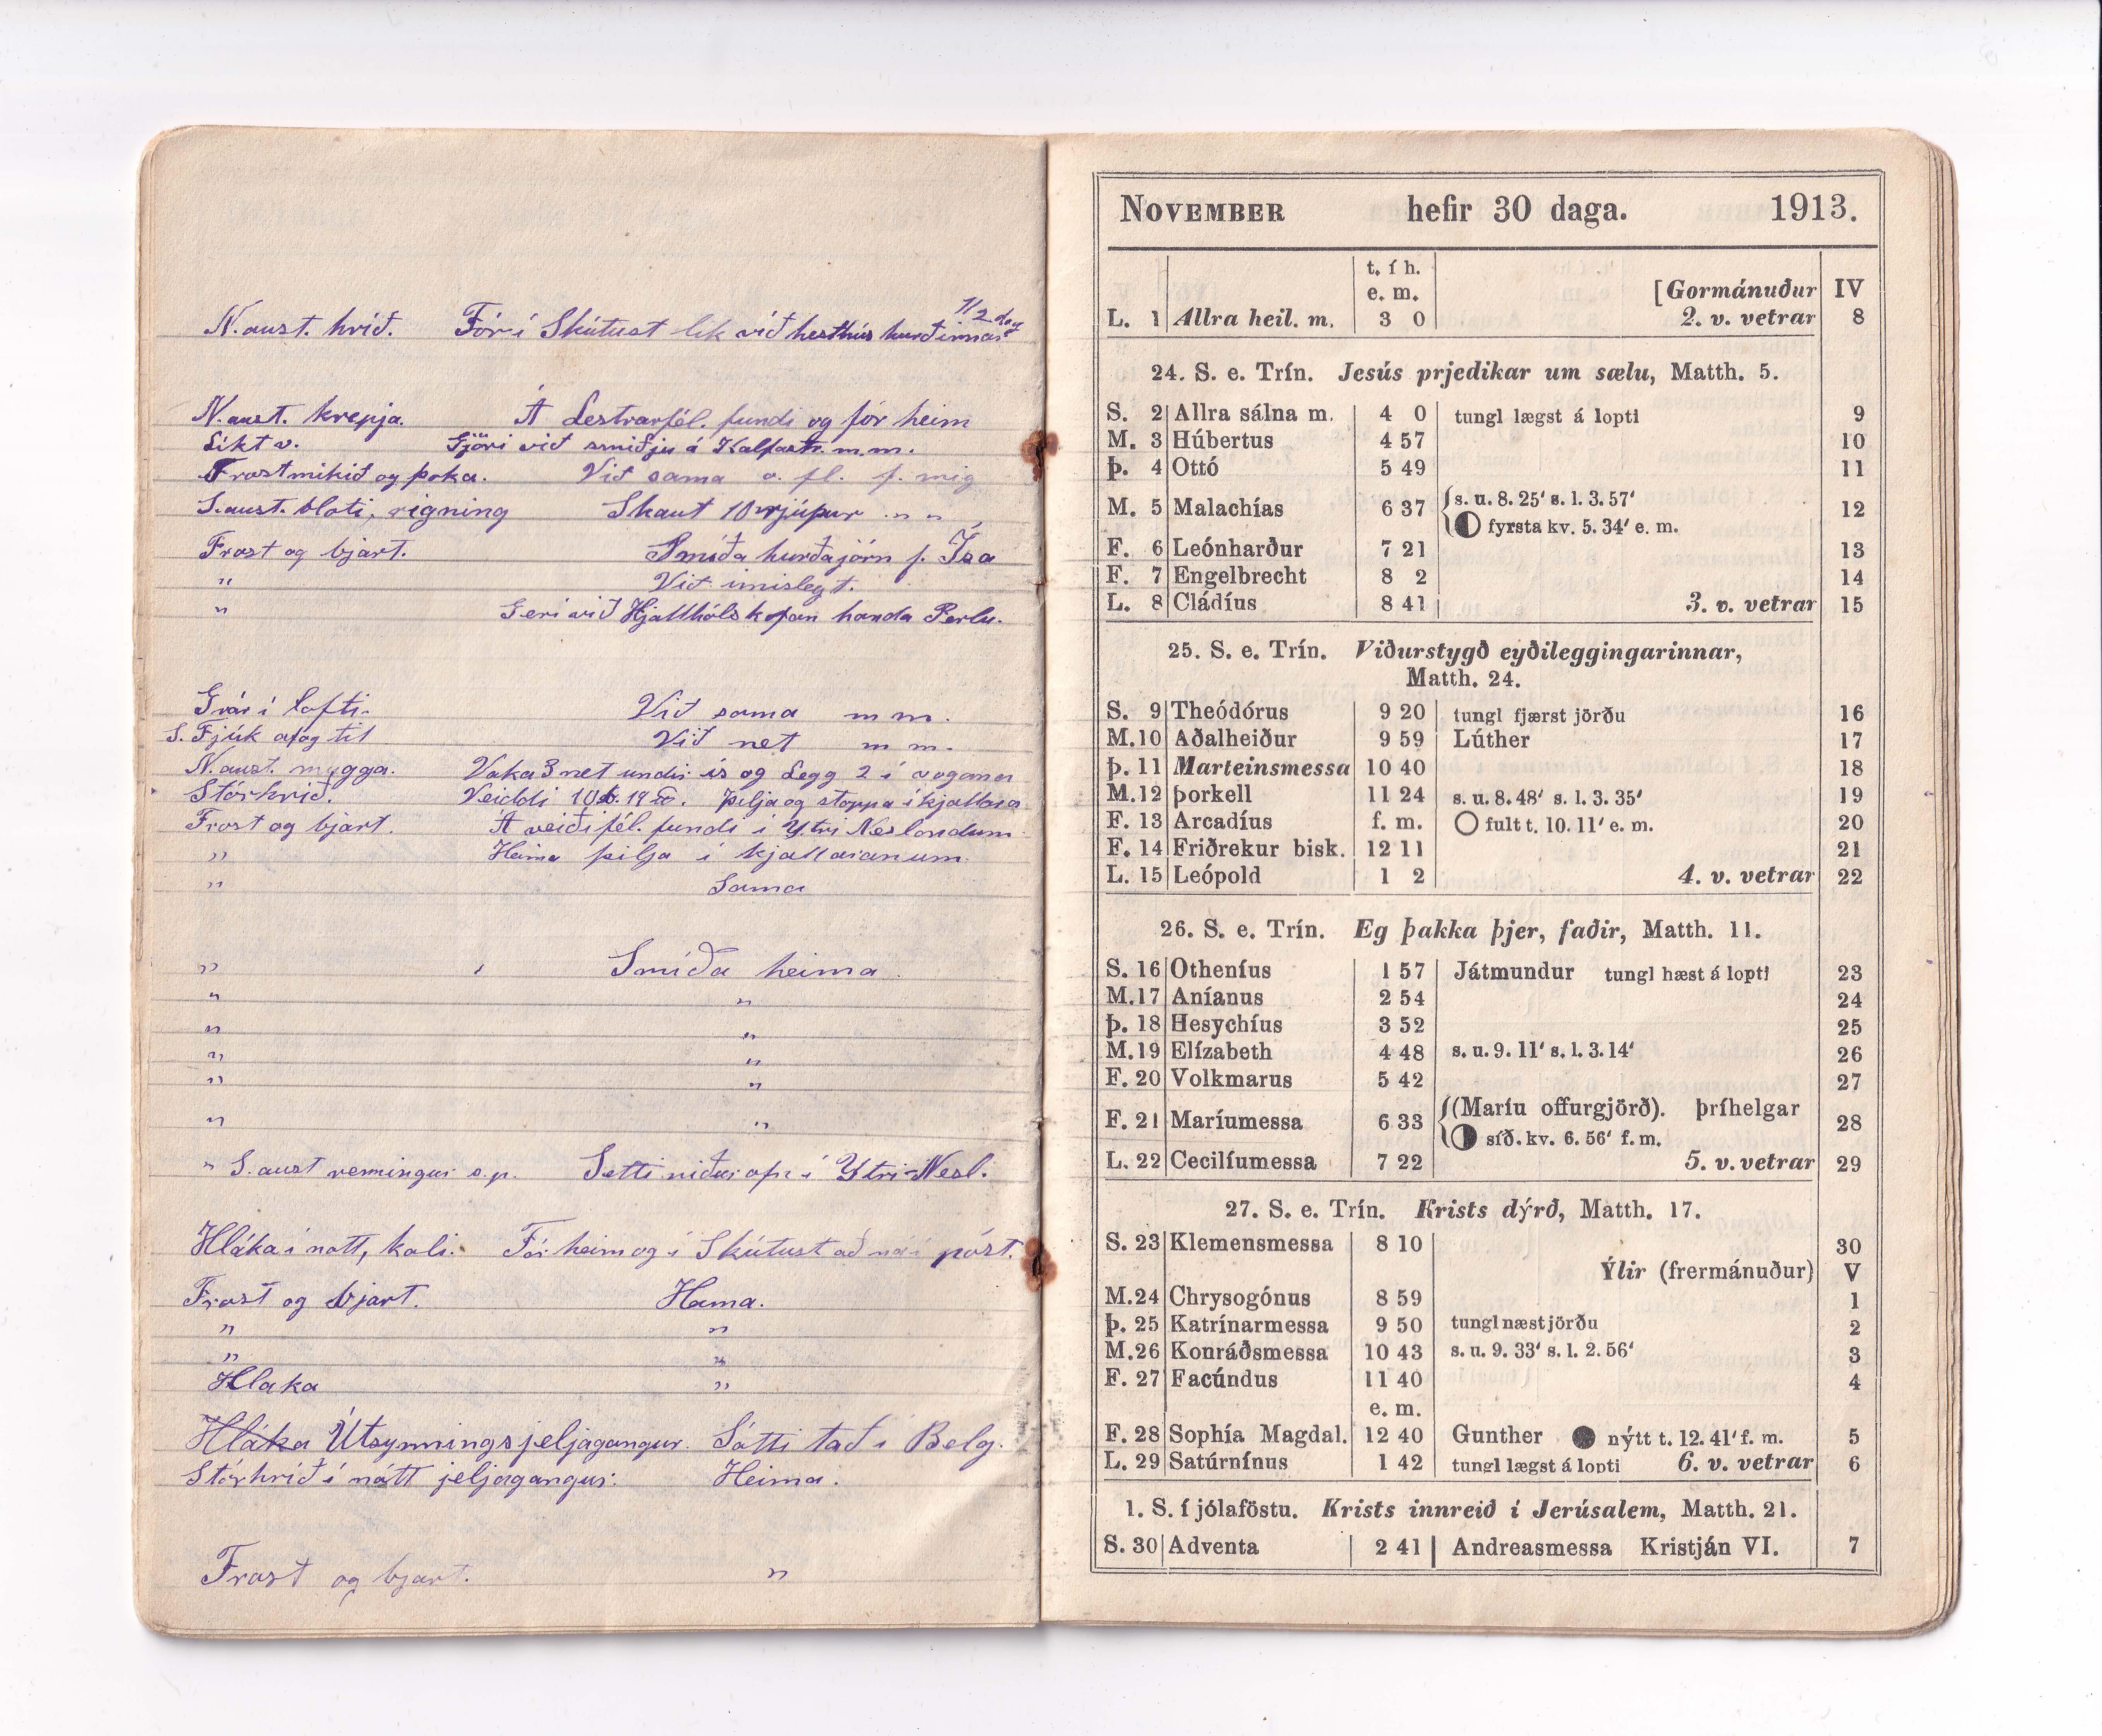 1/2 dag
N. aust. hríð. Fór í Skútust lek við hesthús hurðirnar
N. aust. krepja. Á Lestrarfél. fundi og fór heim
Líkt v. Gjöri við smiðju á Kalfastr. m.m.
Frostmikið og þoka. Við sama o. fl. f. mig
S. aust. bloti, rigning Skaut 10 rjúpur " "
Frost og bjart. Smíða hurðajárn f. Ísa
" Við ímislegt.
" Geri við Hjallhóls kofan handa Perlu.
Grár í lofti. Við sama m m.
S. Fjúk af og til Við net m m.
N. aust. mugga. Vaka 3 net undir ís og Legg 2 í vogana
Stórhríð. Veiddi 10 b. 19 s. Þilja og stoppa í kjallara
Frost og bjart. Á veiðifél. fundi í Ytri Neslöndum
" Heima þilja í kjallaranum.
" Sama
" Smíða heima.
" "
" "
" "
" "
" "
" S. aust renningur s.p. Setti niður ofn í Ytri-Nesl.
Hláka í nott, kali. Fór heim og í Skútust að ná í póst.
Frost og bjart. Hema.
" "
" "
Hlaka "
Hláka Útsynningsjeljagangur. Sótti tað í Belg.
Stórhríð í nótt jeljagangur. Heima.
Frost og bjart. "
NOVEMBER hefir 30 daga. 1913.
t. í h.
e. m. [Gormánuður IV
L. 1 Allra heil. m. 3 0 2. v. vetrar 8
24. S. e. Trín. Jesús prjedikar um sælu, Matth. 5.
S. 2 Allra sálna m. 4 0 tungl lægst á lopti 9
M. 3 Húbertus 4 57 10
Þ. 4 Ottó 5 49 11
M. 5 Malachías 6 37 s. u. 8. 25' s. l. 3. 57' 12
fyrsta kv. 5. 34' e. m.
F. 6 Leónharður 7 21 13
F. 7 Engelbrecht 8 2 14
L. 8 Cládíus 8 41 3. v. vetrar 15
25. S. e. Trín. Viðurstygð eyðileggingarinnar,
Matth. 24.
S. 9 Theódórus 9 20 tungl fjærst jörðu 16
M. 10 Aðalheiður 9 59 Lúther 17
Þ. 11 Marteinsmessa 10 40 18
M. 12 Þorkell 11 24 s. u. 8. 48' s. l. 3. 35' 19
F. 13 Arcadíus f. m. fult t. 10. 11' e. m. 20
F. 14 Friðrekur bisk. 12 11 21
L. 15 Leópold 1 2 4. v. vetrar 22
26. S. e. Trín. Eg þakka þjer, faðir, Matth. 11.
S. 16 Otheníus 1 57 Játmundur tungl hæst á lopti 23
M. 17 Aníanus 2 54 24
Þ. 18 Hesychíus 3 52 25
M. 19 Elízabeth 4 48 s. u. 9. 11' s. l. 3. 14' 26
F. 20 Volkmarus 5 42 27
F. 21 Maríumessa 6 33 (Maríu offurgjörð). Þríhelgar 28
síð. kv. 6. 56' f. m.
L. 22 Cecilíumessa 7 22 5. v. vetrar 29
27. S. e. Trín. Krists dýrð, Matth. 17.
S. 23 Klemensmessa 8 10 30
Ýlir (frermánuður) V
M. 24 Chrysogónus 8 59 1
Þ. 25 Katrínarmessa 9 50 tungl næst jörðu 2
M. 26 Konráðsmessa 10 43 s. u. 9. 33' s. l. 2. 56' 3
F. 27 Facúndus 11 40 4
e. m.
F. 28 Sophía Magdal. 12 40 Gunther nýtt t. 12. 41' f. m. 5
L. 29 Satúrnínus 1 42 tungl lægst á lopti 6. v. vetrar 6
1. S. í jólaföstu. Krists innreið í Jerúsalem, Matth. 21.
S. 30 Adventa 2 41 Andreasmessa Kristján VI. 7